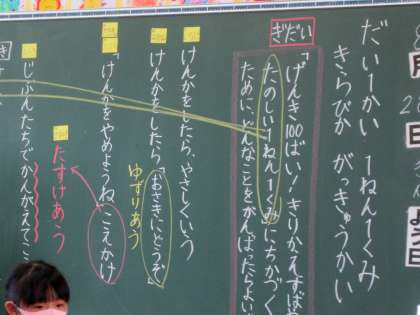 月
日
よう日
だい1かい 1ねん1くみ
きらぴか がっきゅうかい
ぎだい
「げんき100ばい!きりかえすば
たのしい1ねん1くみ」にちかづく
ために、どんなことをがんばったらよい
けんかをしたら、やさしくいう
けんかをしたら、「おさきにどうぞ」
ゆずりあう
「けんかをやめようね」こえかけ
たすけあう
じぶんたちでかんがえてこ